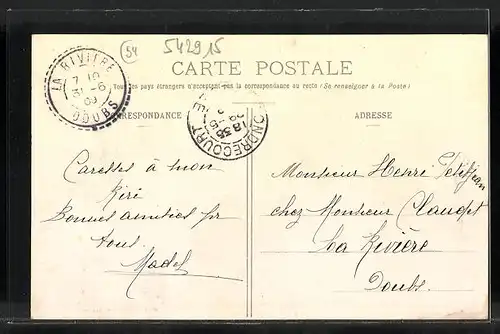 54
542915
CARTE POSTALE
Tous les pays étrangers n'acceptent pas la correspondance au recto (Se renseigner à la Poste)
CORRESPONDANCE
ADRESSE
LA RIVIÈRE
7 10
31 -6
09
DOUBS
GONDRECOURT
18 35
29 -5
Caresses à mon
Kiri
Bonnes amitiés pr
tous.
Madel
Monsieur Henri Petitjean
chez Monsieur Claudet
La Rivière
Doubs.